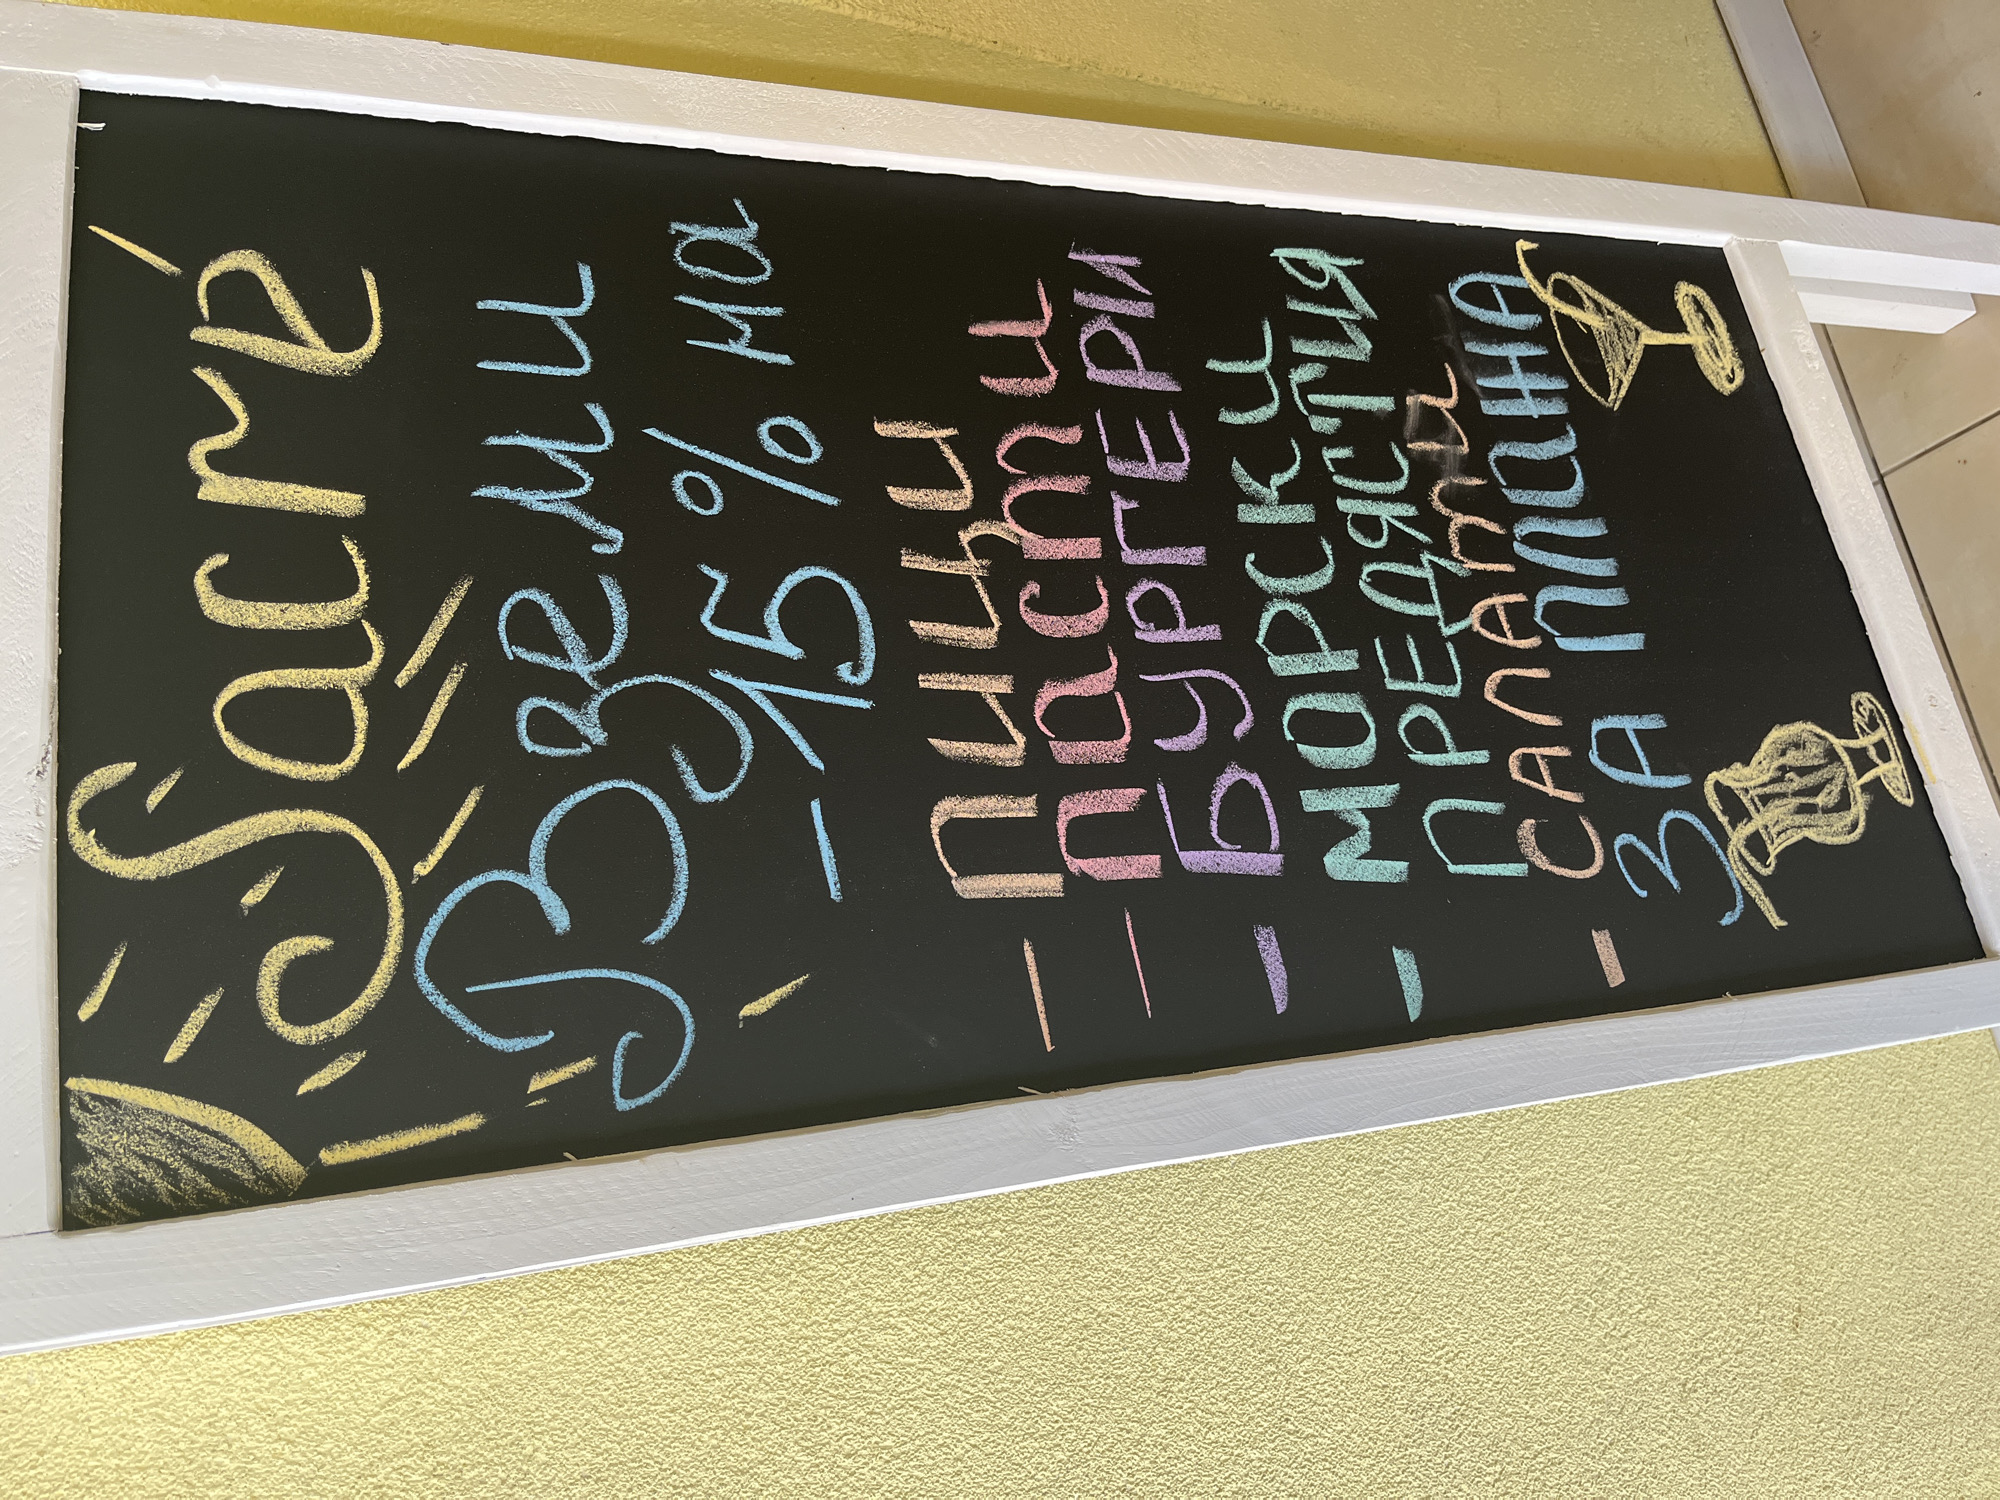 Sacré
Вземи
- 15% на
- ПИЦИ
- Пасти
- БУРГЕРИ
МОРСКИ
- ПРЕДЯСТИЯ
- САЛАТи
ЗА ПЛАЖА